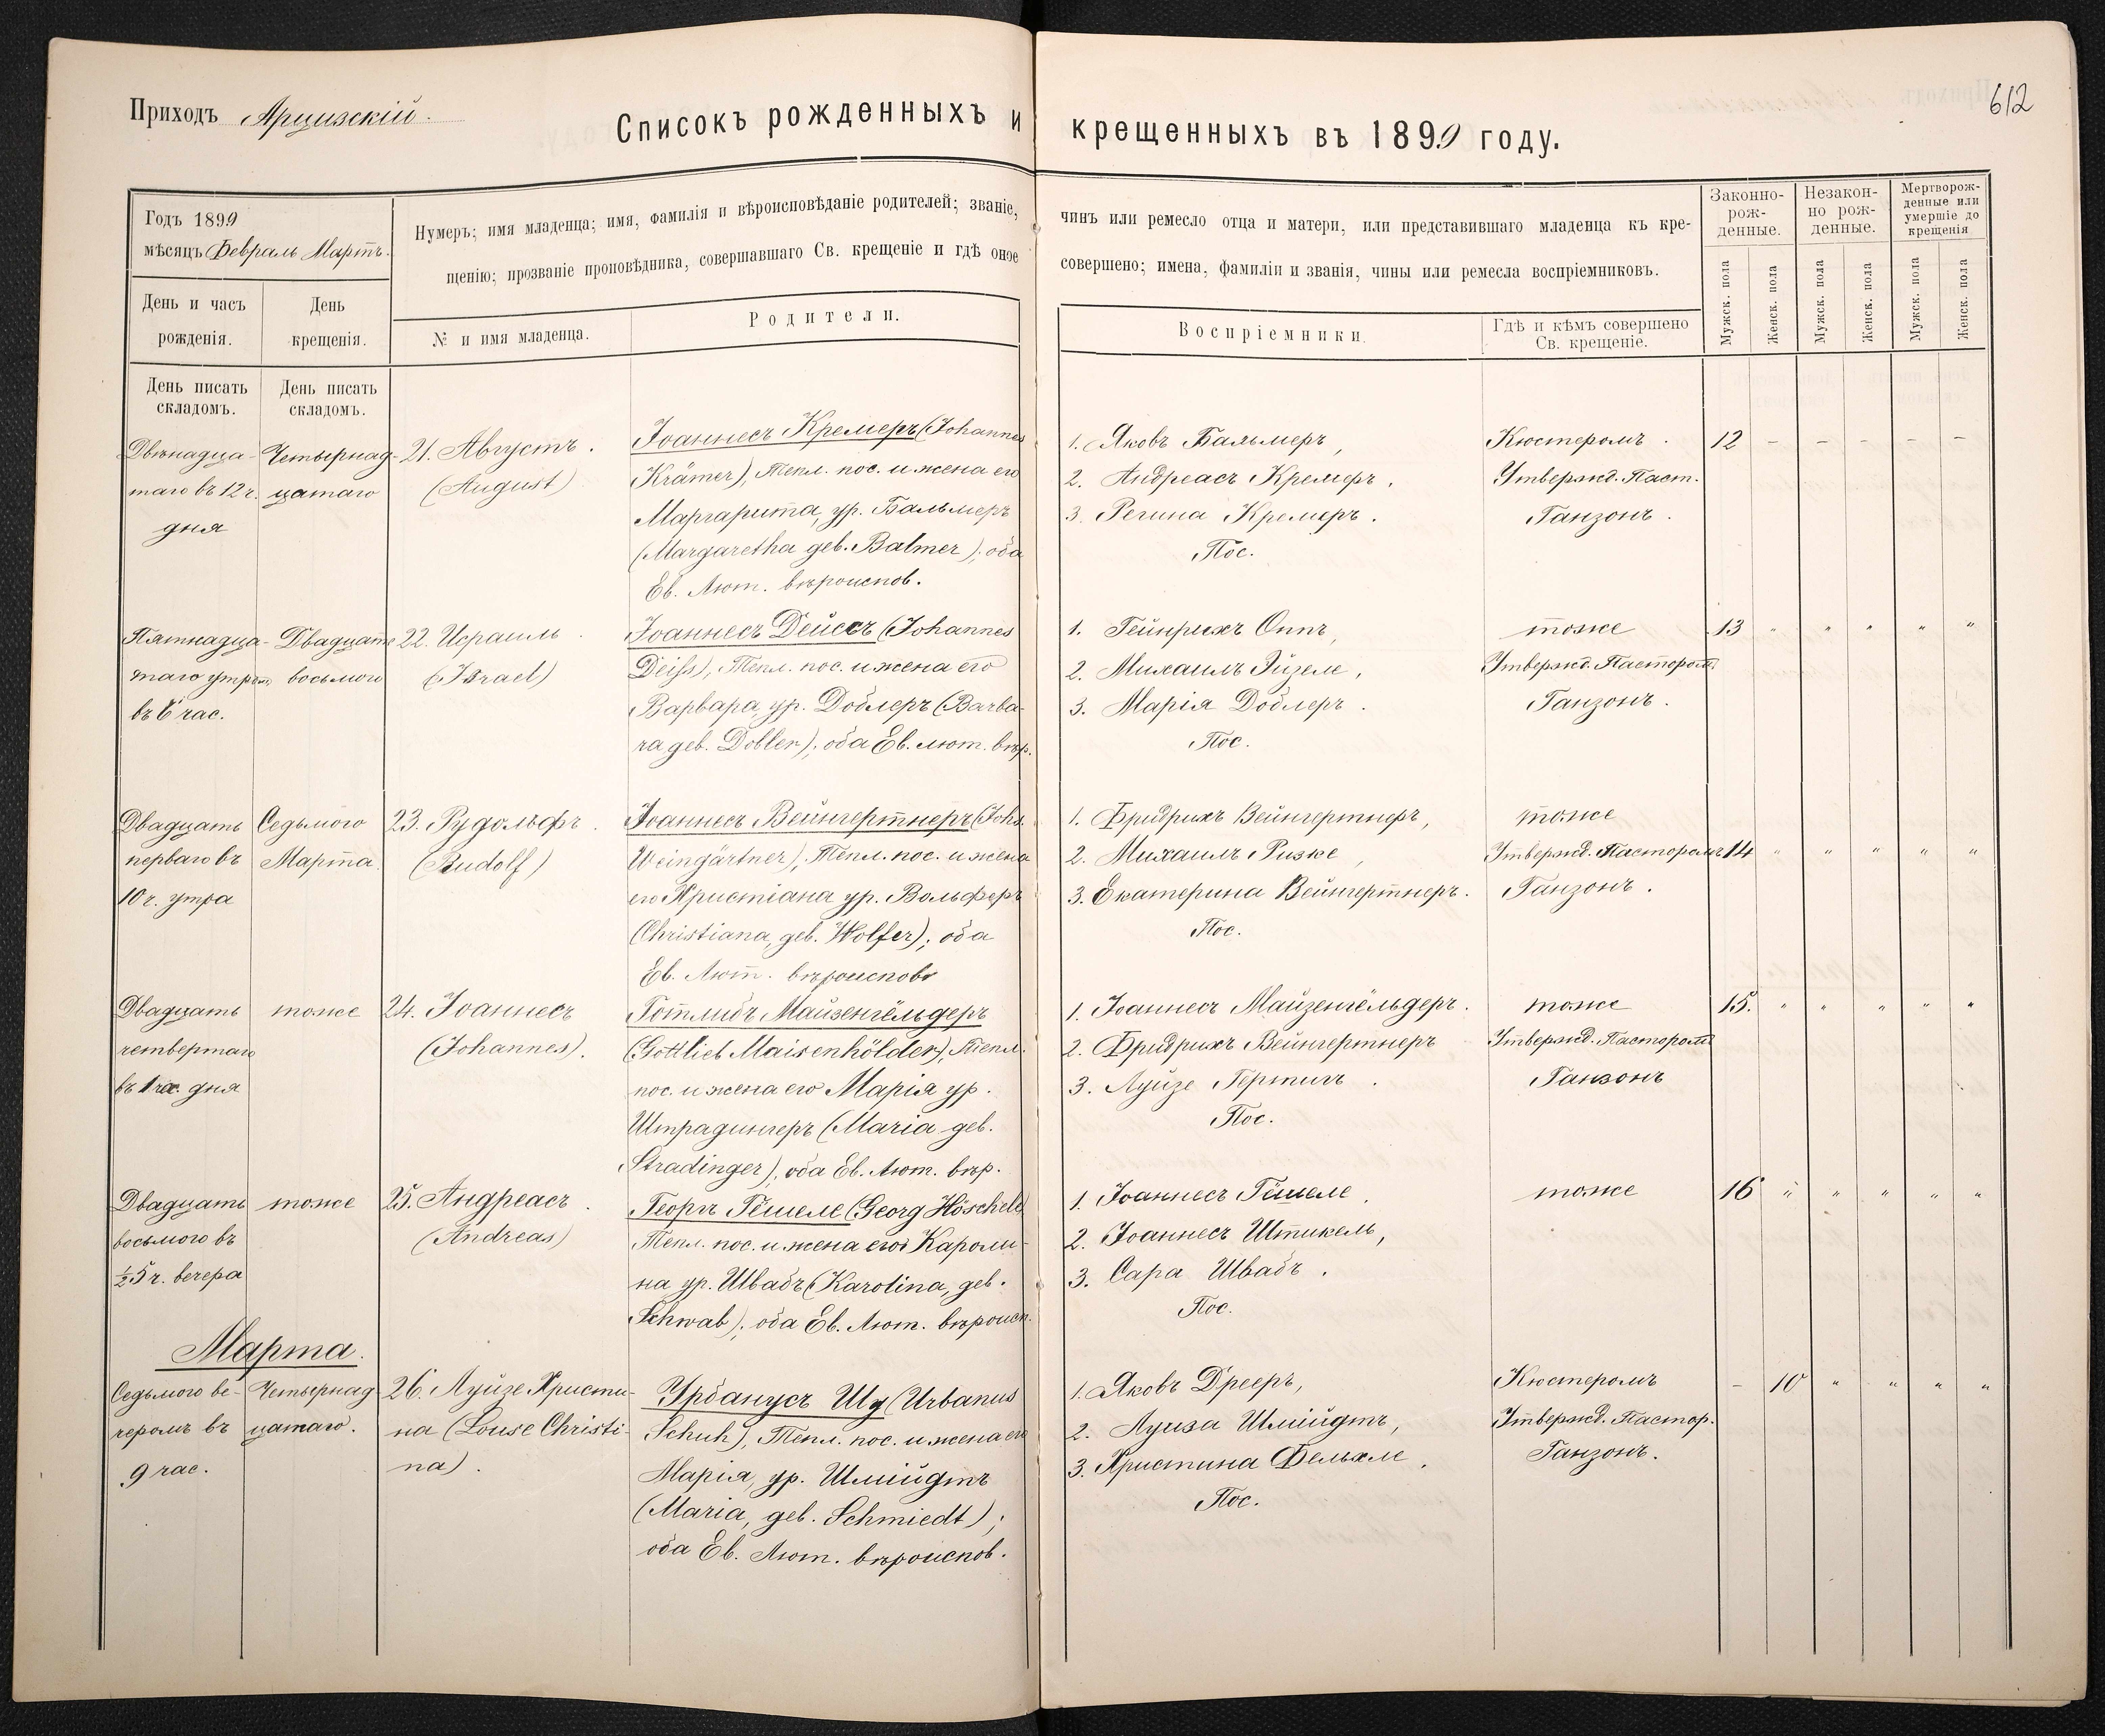 Приходъ Арцизскій.
612
Списокъ рожденныхъ и крещенныхъ въ 1899 году.
Годъ 1899
мѣсяцъ Февраль Мартъ.
Нумеръ; имя младенца; имя, фамилія и вѣроисповѣданіе родителей; званіе, чинъ или ремесло отца и матери, или представившаго младенца къ кре-
щенію; прозваніе проповѣдника, совершавшаго Св. крещеніе и гдѣ оное совершено; имена, фамиліи и званія, чины или ремесла воспріемниковъ.
Законно-
рож-
денные.
Незакон-
но рож-
денные.
Мертворож-
денные или
умершіе до
крещенія
День и часъ
рожденія.
День
крещенія.
№ и имя младенца.
Родители.
Воспріемники.
Гдѣ и кѣмъ совершено
Св. крещеніе.
Мужск. пола
Женск. пола
Мужск. пола
Женск. пола
Мужск. пола
Женск. пола
День писать
складомъ.
День писать
складомъ.
Двѣнадца-
таго въ 12 ч.
дня
Четырнад-
цатаго
21. Августъ.
(August)
Іоаннесъ Кремеръ (Johannes
Krämer), Тепл. пос. и жена его
Маргарита, ур. Бальмеръ
(Margaretha geb. Balmer); оба
Ев. Лют. вѣроиспов.
1. Яковъ Бальмеръ,
2. Андреасъ Кремеръ,
3. Регина Кремеръ.
Пос.
Кюстеромъ.
Утвержд. Паст.
Ганзонъ.
12 – – – – –
Пятнадца-
таго утромъ
въ 6 час.
Двадцать
восьмого
22. Исраиль.
(Israel)
Іоаннесъ Дейссъ (Johannes
Deiss), Тепл. пос. и жена его
Варвара, ур. Доблеръ (Barba-
ra geb. Dobler); оба Ев. лют. вѣр.
1. Гейнрихъ Оппъ,
2. Михаилъ Эйзеле,
3. Марія Доблеръ.
Пос.
тоже
Утвержд. Пасторомъ
Ганзонъ.
13 " " " " "
Двадцать
перваго въ
10 ч. утра
Седьмого
Марта.
23. Рудольфъ.
(Rudolf)
Іоаннесъ Вейнгертнеръ (Johs.
Weingärtner), Тепл. пос. и жена
его Христіана ур. Вольферъ
(Christiana, geb. Wolfer); оба
Ев. Лют. вѣроисповѣ
1. Фридрихъ Вейнгертнеръ,
2. Михаилъ Ризке,
3. Екатерина Вейнгертнеръ.
Пос.
тоже
Утвержд. Пасторомъ
Ганзонъ.
14 " " " " "
Двадцать
четвертаго
въ 1 час. дня
тоже
24. Іоаннесъ
(Johannes).
Готлибъ Майзенгёльдеръ
(Gottlieb Maisenhölder), Тепл.
пос. и жена его Марія ур.
Штрадингеръ (Maria geb.
Stradinger), оба Ев. Лют. вѣр.
1. Іоаннесъ Майзенгёльдеръ.
2. Фридрихъ Вейнгертнеръ
3. Луйзе Гертигъ.
Пос.
тоже
Утвержд. Пасторомъ
Ганзонъ
15. " " " " "
Двадцать
восьмого въ
½5 ч. вечера
тоже
25. Андреасъ.
(Andreas)
Георгъ Гёшеле (Georg Höschele)
Тепл. пос. и жена его Кароли-
на ур. Швабъ (Karolina, geb.
Schwab); оба Ев. Лют. вѣроисп.
1. Іоаннесъ Гёшеле,
2. Іоаннесъ Штикель,
3. Сара Швабъ.
Пос.
тоже
16 " " " " "
Марта.
Седьмого ве-
черомъ въ
9 час.
Четырнад-
цатаго.
26. Луйзе Христи-
на (Louse Christi-
na).
Урбанусъ Шу (Urbanus
Schuh), Тепл. пос. и жена его
Марія, ур. Шмійдтъ
(Maria, geb. Schmiedt);
оба Ев. Лют. вѣроиспов.
1. Яковъ Дрееръ,
2. Луиза Шмійдтъ,
3. Христина Фельхле.
Пос.
Кюстеромъ
Утвержд. Пастор.
Ганзонъ.
– 10 " " " "